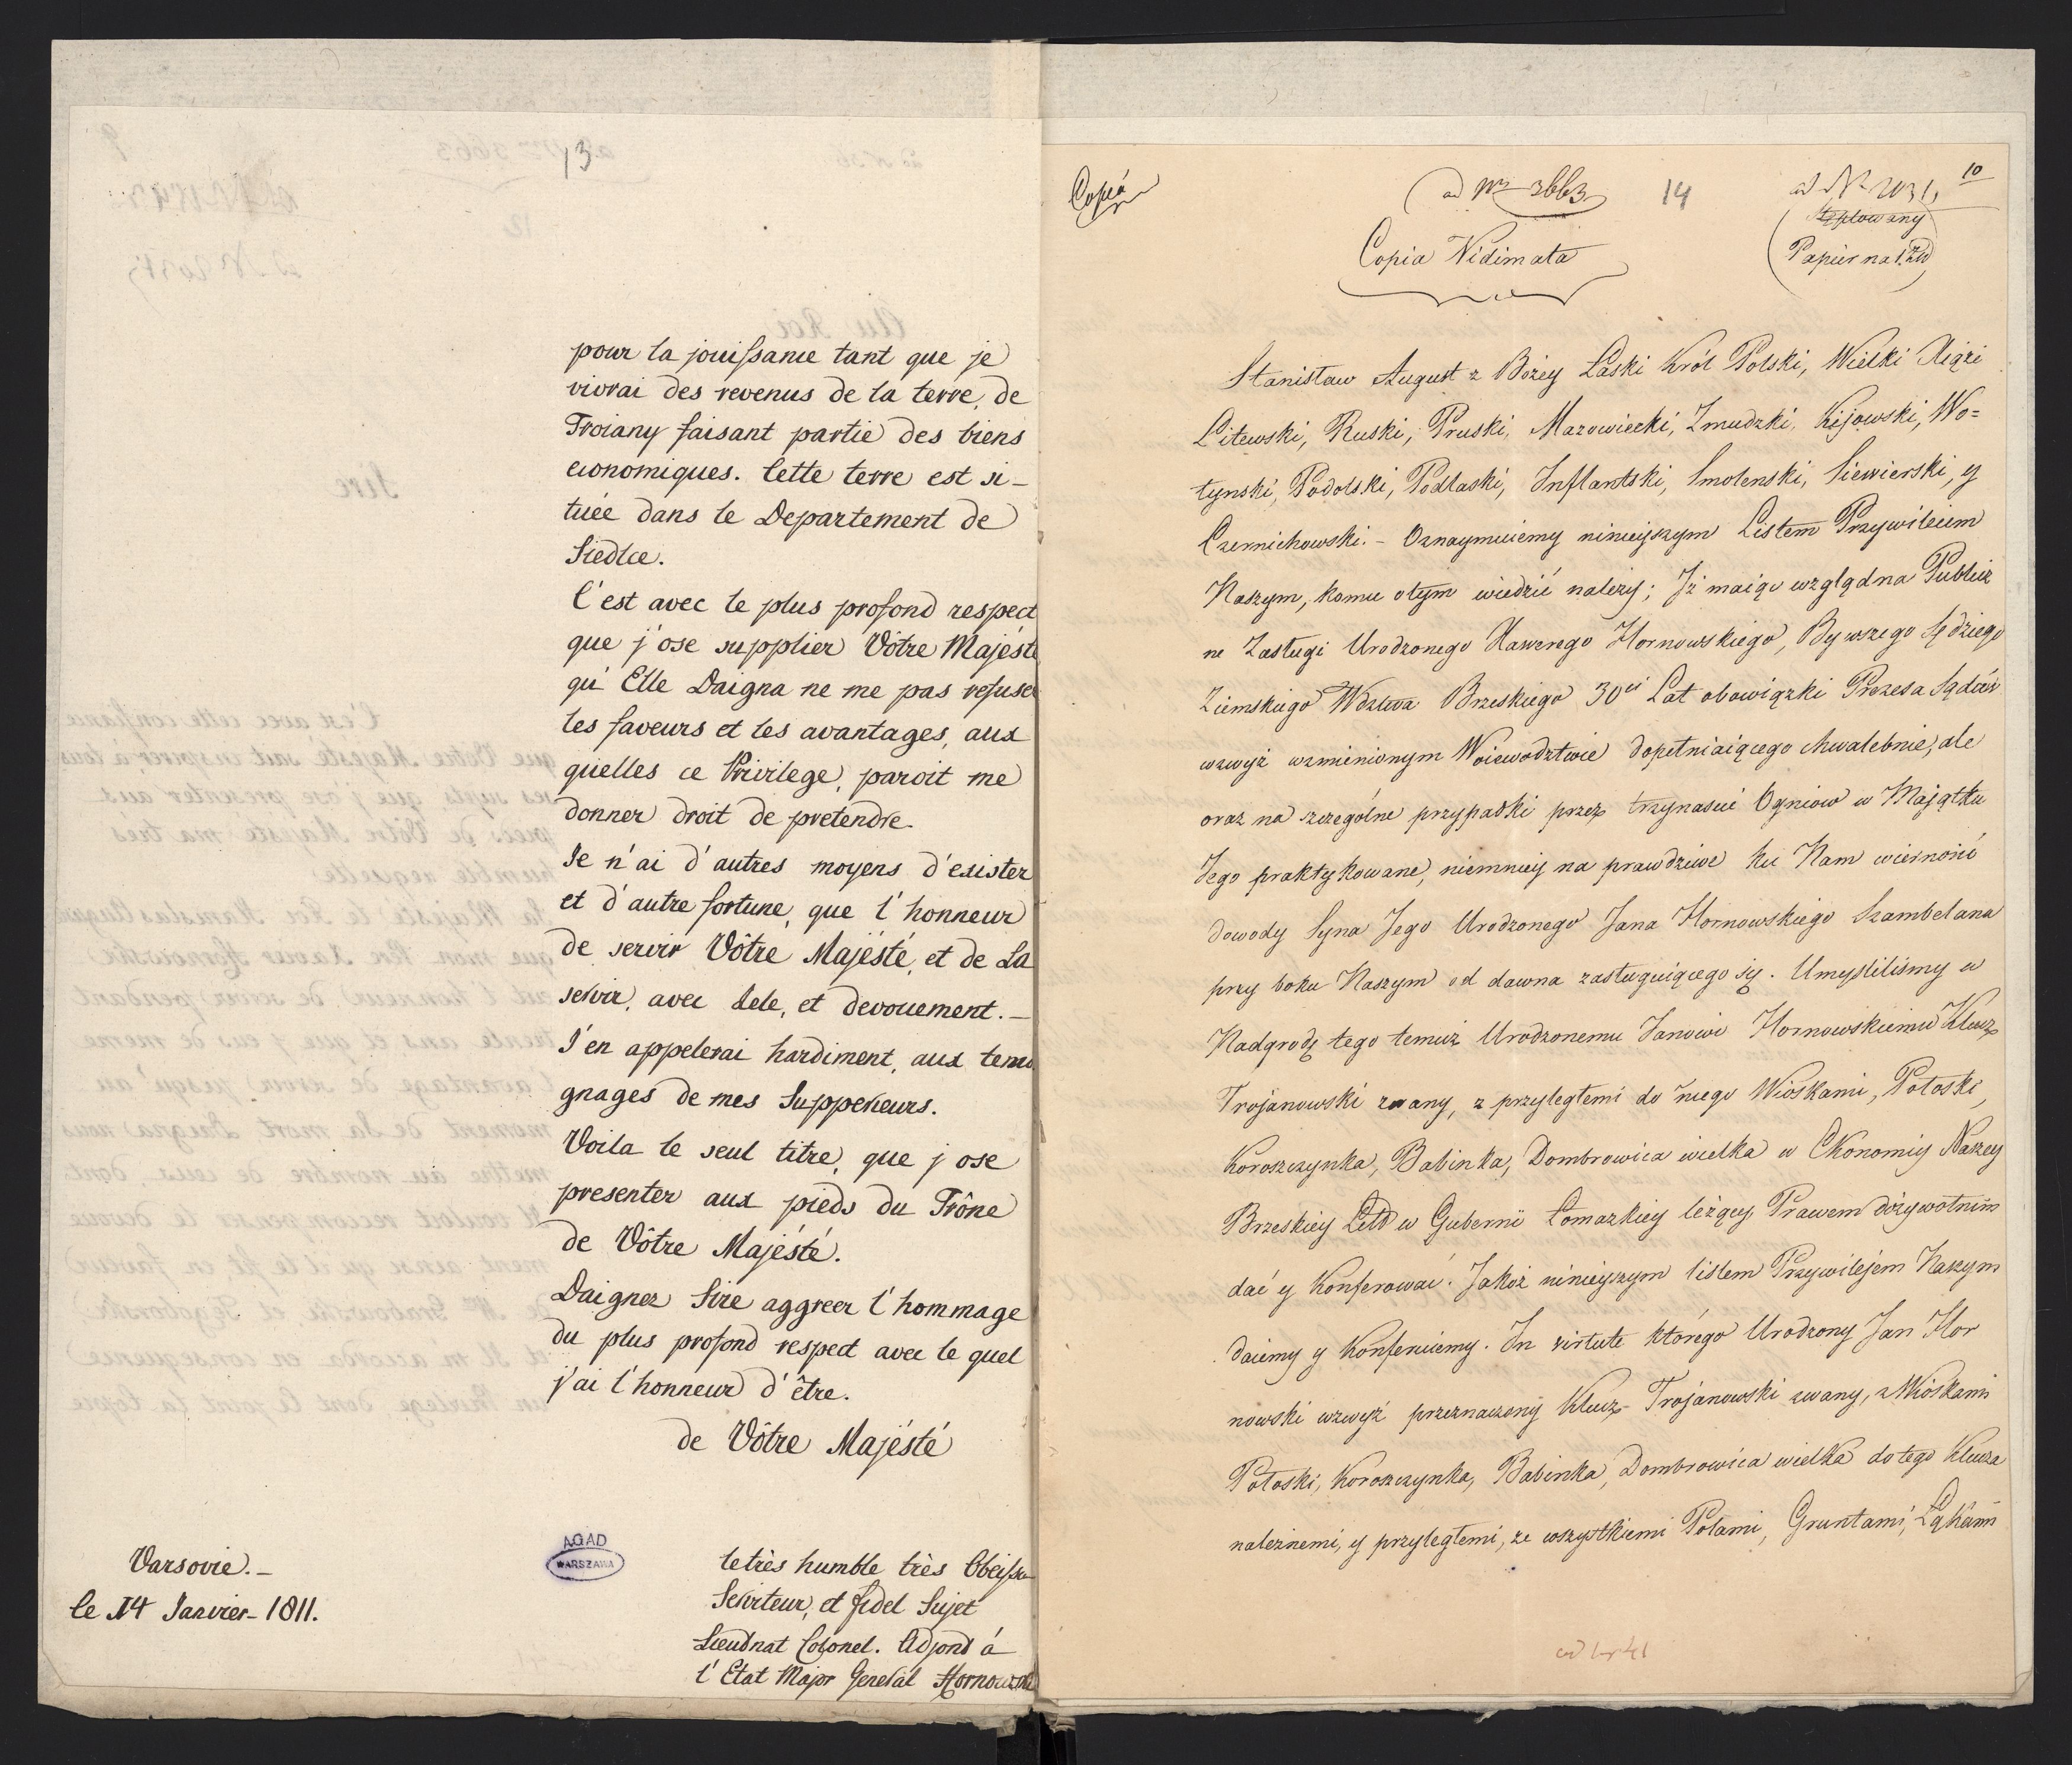 13
pour la jouissance tant que je
vivrai des revenus de la terre, de
Troiany faisant partie des biens
economiques. Cette terre est si-
tuée dans le Departement de
Siedlce.
C'est avec le plus profond respect
que j'ose supplier Vôtre Majésté
qu'Elle Daigna ne me pas refuser
les faveurs et les avantages, aux
quelles ce Privilege, paroit me
donner droit de pretendre.
Je n'ai d'autres moyens d'exister
et d'autre fortune, que l'honneur
de servir Vôtre Majésté, et de La
servir, avec Zele, et devouement.-
J'en appelerai hardiment, aux temo
gnages de mes Supperieurs.
Voila le seul titre, que j ose
presenter aux pieds du Trône
de Vôtre Majésté.
Daignez Sire aggreer l'hommage
du plus profond respect avec le quel
j'ai l'honneur d'être.
de Vôtre Majésté
Varsovie.-
le 14 Janvier-1811.
AGAD
WARSZAWA
le très humble très Obeissa
Serviteur, et fidel Sujet
Lieudnat Colonel. Adjond á
l'Etat Major General Hornowski
Copia
ad Nr 3663
14
ad Nr 2031
10
Stęplowany
Papier na 1. Zł
Copia Vidimata
Stanisław August z Bożey Łaski Król Polski, Wielki Xiąże
Litewski, Ruski, Pruski, Mazowiecki, Zmudzki, Kijowski, Wo=
łynski, Podolski, Podlaski, Inflantski, Smolenski, Siewierski, y
Czernichowski. - Oznaymuiemy ninieyszym Listem Przywileiem
Naszym, komu o tym wiedzić należy; Iż maiąc wzgląd na Publicz
ne Zasługi Urodzonego Xawerego Hornowskiego, Bywszego Sędziego
Ziemskiego Wdztwa Brzeskiego 30ci Lat obowiązki Prezesa Sądów
wzwyż wzmienionym Woiewodztwie dopełniaiącego chwalebnie, ale
oraz na szczególne przypadki przez trzynascie Ogniow w Maiątku
Jego praktykowane, niemniey na prawdziwe ku Nam wierności
dowody Syna Jego Urodzonego Jana Hornowskiego Szambelana
przy boku Naszym od dawna zasługuiącego się. Umyslilismy w
Nadgrodę tego temuż Urodzonemu Janowi Hornowskiemu Klucz
Trojanowski zwany, z przyległemi do niego Wioskami, Połoski,
Koroszczynka, Babinka, Dombrowica wielka w Ekonomiy Naszey
Brzeskiey Litt w Gubernii Łomazkiey leżący, Prawem dożywotnim
dać y Konferować. Jakoż ninieyszym listem Przywilejem Naszym
daiemy y Konferuiemy. In virtute którego Urodzony Jan Hor
nowski wzwyż przeznaczony Klucz Trojanowski zwany, z Wioskami
Połoski, Koroszczynka, Babinka, Dombrowica wielka do tego Klucza
należnemi, y przyległemi, ze wszystkiemi Polami, Gruntami, Łąkami